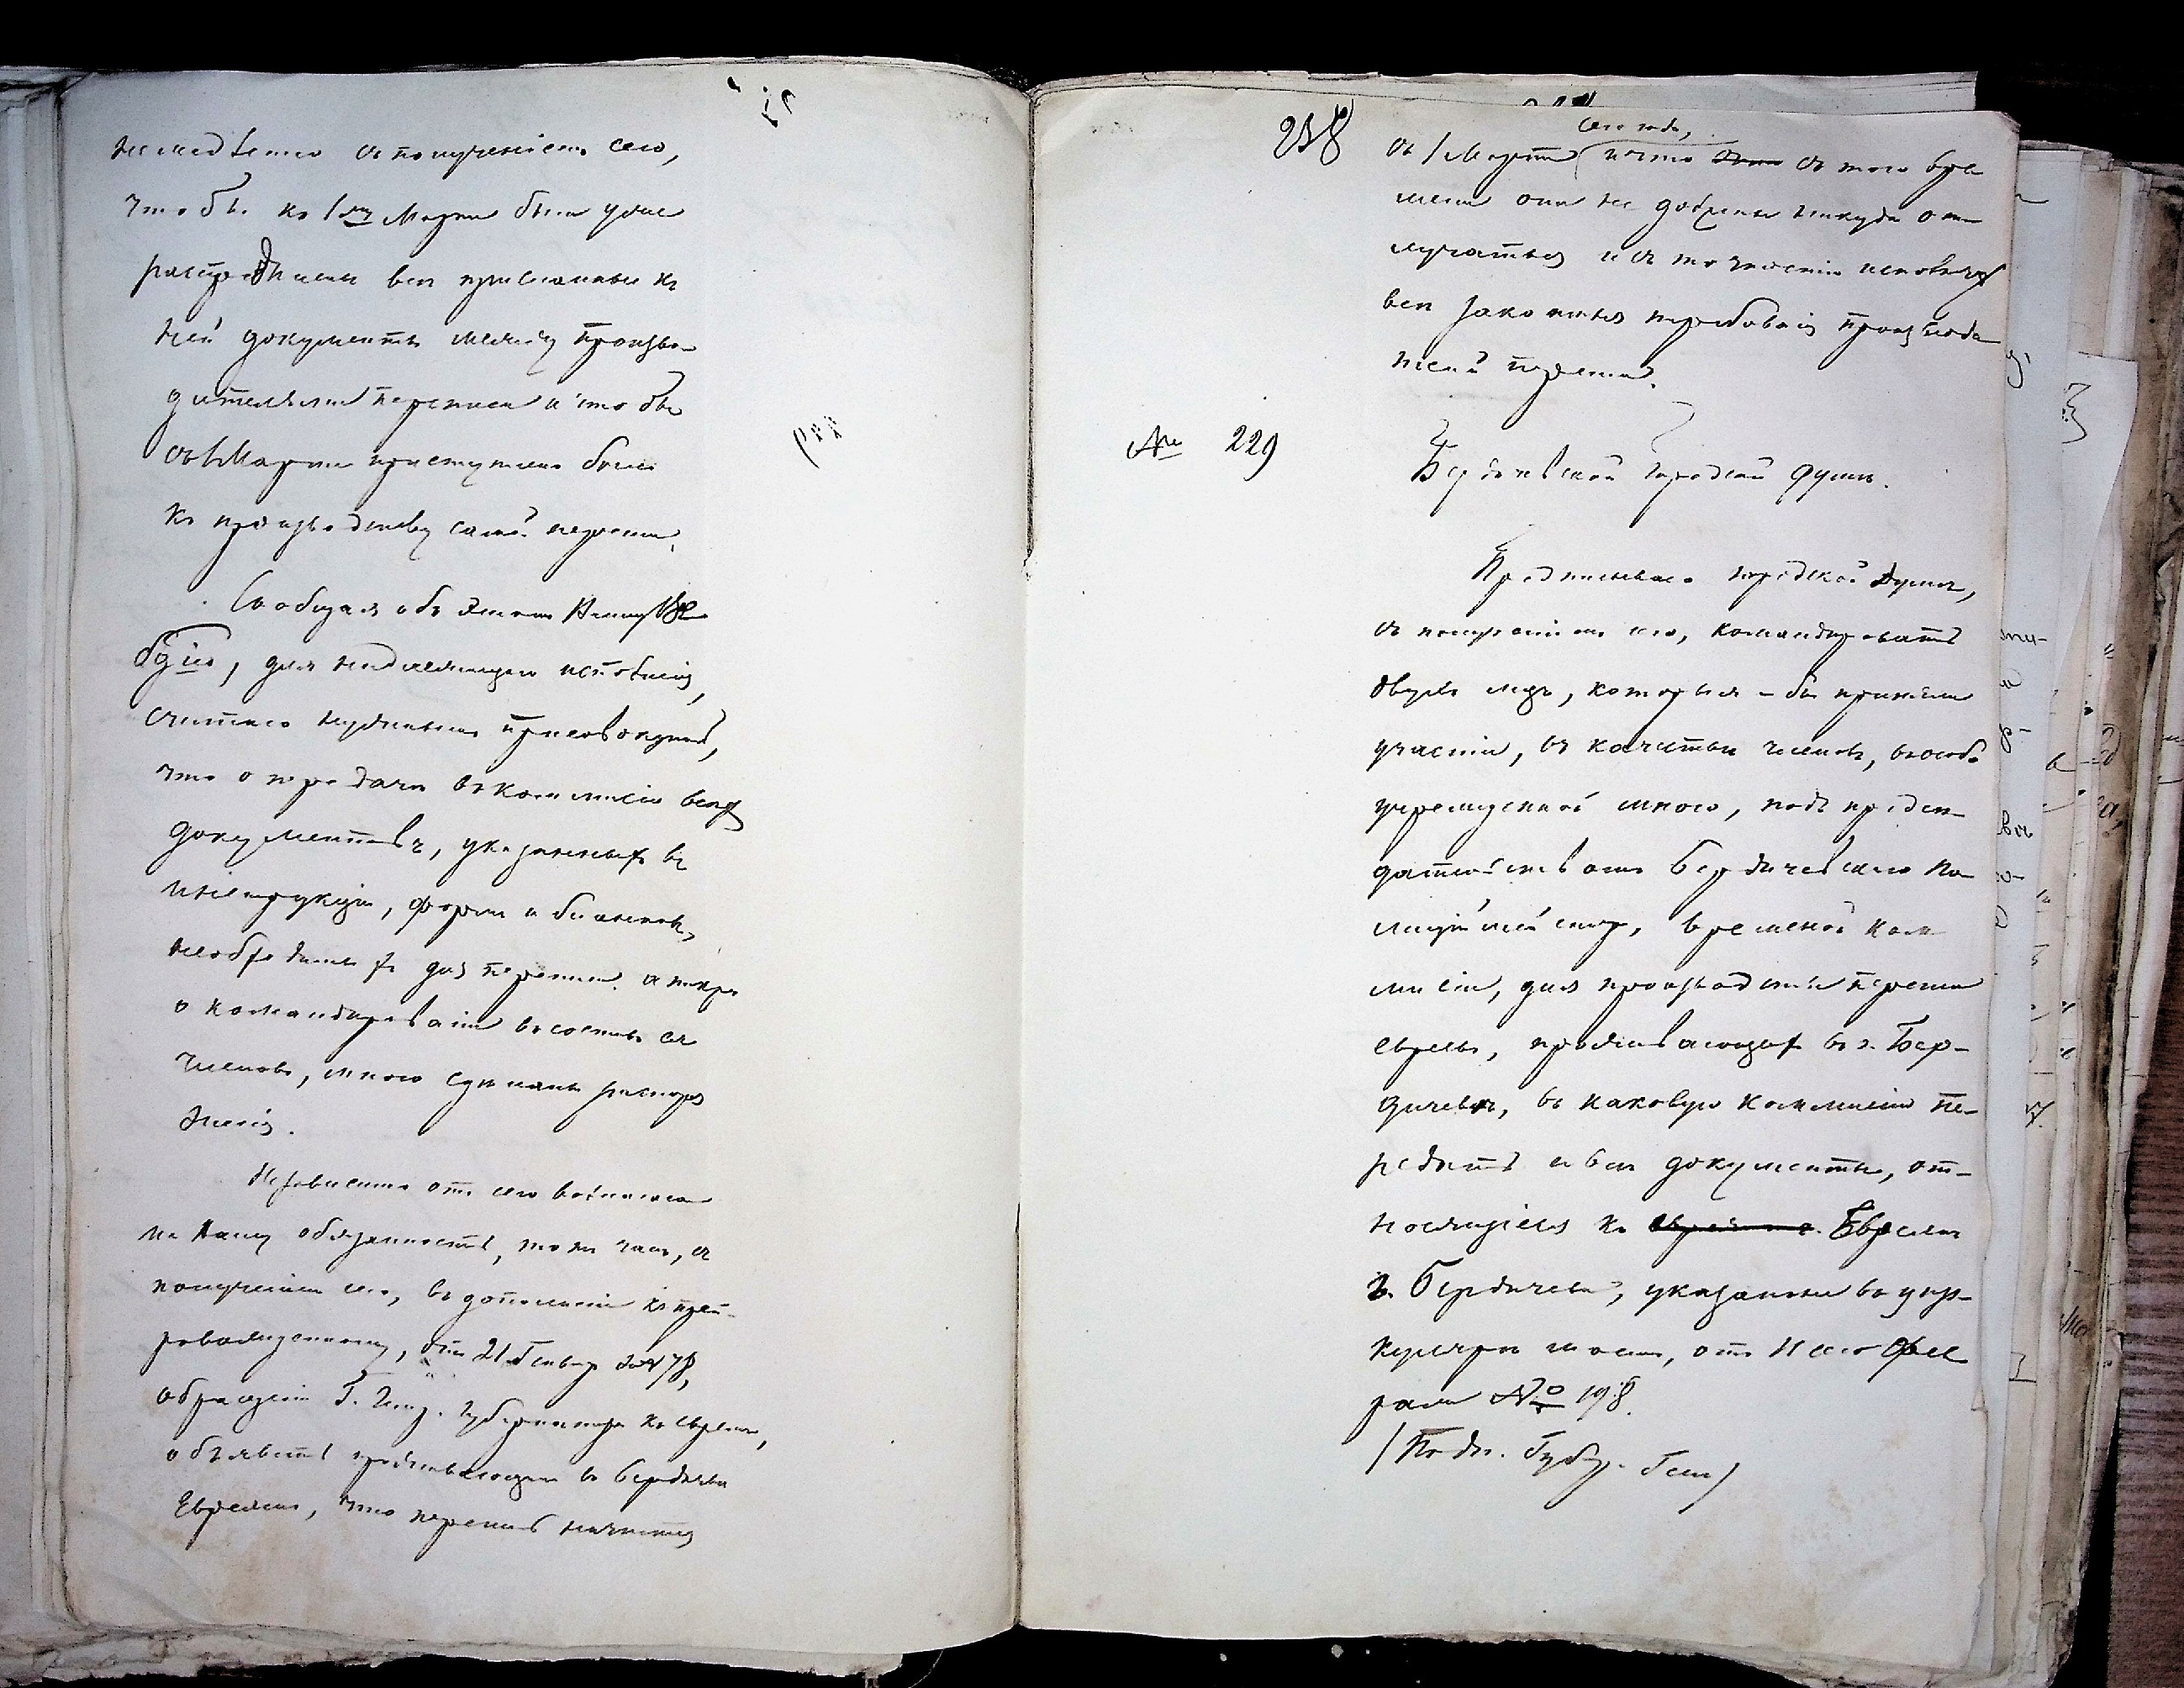 немедленно съ полученіемъ сего,
чтобы къ 1му Марта были уже
распредѣлены всѣ присланные къ
ней документы между произво-
дителями переписи и чтобы
съ 1 Марта приступлено было
къ производству самой переписи.
Сообщая объ этомъ
для надлежащаго исполненія,
считаю нужнымъ присовокупить,
что о передачѣ въ коммисію всѣхъ
документовъ, указанныхъ въ
инструкціи, формъ и бланковъ,
необходимыхъ для переписи, а также
о командированіи въ составъ ея
членовъ, мною сдѣланы распоря
женія.
Независимо отъ сего возлагаю
на Вашу обязанность, тотъ часъ, съ
полученіемъ сего, въ дополненіе къ препро-
вожденному, отъ 21 Генваря за № 78,
обращенію Г. Генер. Губернатора къ евреямъ,
объявить проживающимъ въ Бердичевѣ
Евреямъ, что перепись начнется
238
сего года,
съ 1 Марта и что съ того вре
мени они не должны никуда от
лучаться и въ точности исполнять
всѣ законныя требованія производи
телей переписи.
№ 229
Бердичевской городской думѣ.
Предписываю городской Думѣ,
съ полученіемъ сего, командировать
двухъ лицъ, которыя-бы приняли
участіе, въ качествѣ членовъ, въ особо
учрежденной мною, подъ предсѣ-
дательствомъ Бердичевскаго По-
лиціймейстера, временной ком
мисіи, для производства переписи
евреевъ, проживающихъ въ г. Бер-
дичевѣ, въ каковую коммисію пе-
редать и всѣ документы, от-
носящіеся къ Евреямъ
г. Бердичева, указанные въ цир-
кулярѣ моемъ, отъ 11 сего Фев
раля № 198.
(Подп. Губер. Гессе)